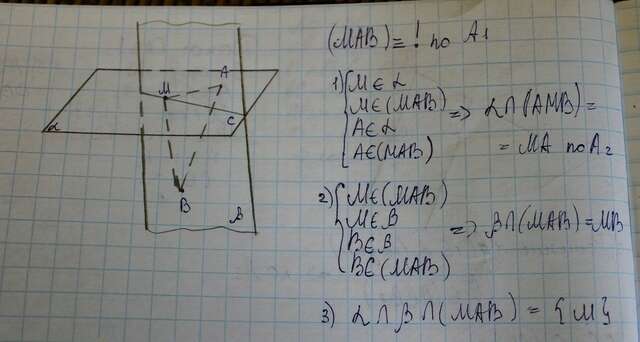 (MAB) = ! по A₁
1) { M ∈ α
M ∈ (MAB)
A ∈ α
A ∈ (MAB)
=> α ∩ (AMB) =
= MA по A₂
2) { M ∈ (MAB)
M ∈ β
B ∈ β
B ∈ (MAB)
=> β ∩ (MAB) = MB
3) α ∩ β ∩ (MAB) = {M}
A
M
C
α
B
β